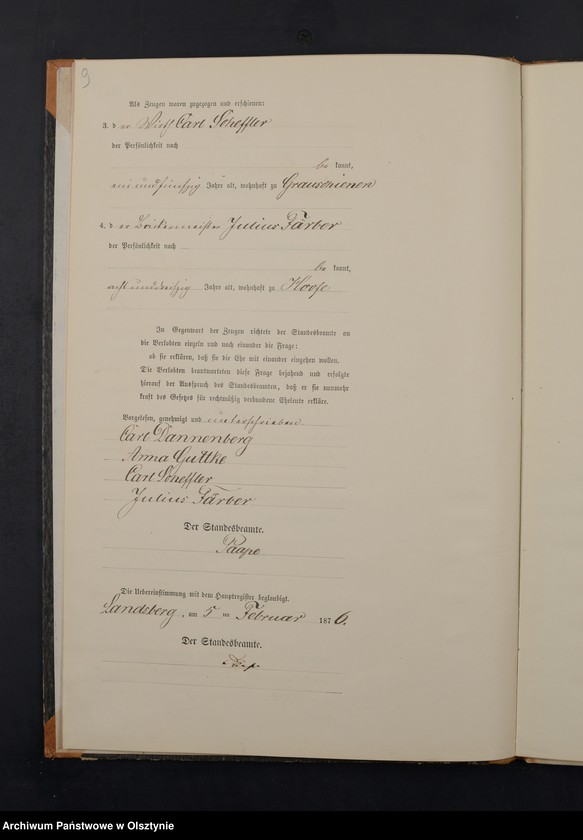 9
Als Zeugen waren zugezogen und erschienen:
3. der Wirth Carl Scheffler
der Persönlichkeit nach
be kannt,
ein und fünfzig Jahre alt, wohnhaft zu Grauschienen
4. der Bäckermeister Julius Färber
der Persönlichkeit nach
be kannt,
acht und dreißig Jahre alt, wohnhaft zu
In Gegenwart der Zeugen richtete der Standesbeamte an
die Verlobten einzeln und nach einander die Frage:
ob sie erklären, daß sie die Ehe mit einander eingehen wollen.
Die Verlobten beantworteten diese Frage bejahend und erfolgte
hierauf der Ausspruch des Standesbeamten, daß er sie nunmehr
kraft des Gesetzes für rechtmäßig verbundene Eheleute erkläre.
Vorgelesen, genehmigt und unterschrieben
Carl Dannenberg
Anna Guttke
Carl Scheffler
Julius Färber
Der Standesbeamte.
Paape
Die Uebereinstimmung mit dem Hauptregister beglaubigt.
Landsberg, am 5 ten Februar 1876.
Der Standesbeamte.
Archiwum Państwowe w Olsztynie